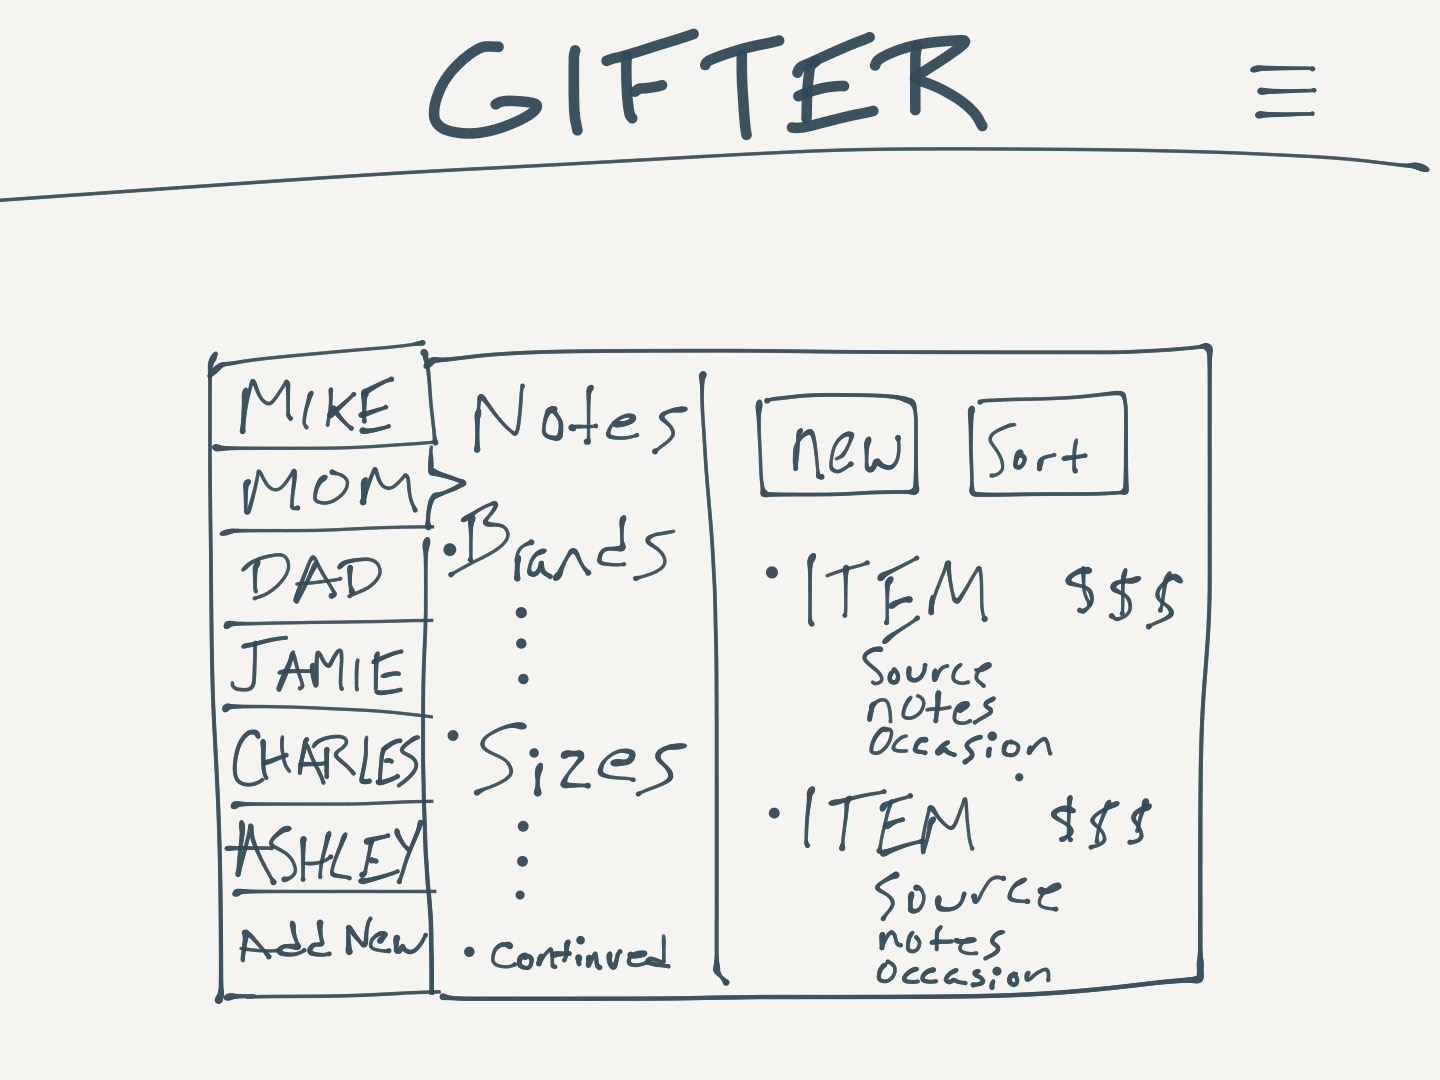 GIFTER
MIKE
MOM
DAD
JAMIE
CHARLES
ASHLEY
Add New
Notes
• Brands
• Sizes
• Continued
new
Sort
• ITEM $$$
Source
notes
Occasion
• ITEM $$$
Source
notes
Occasion